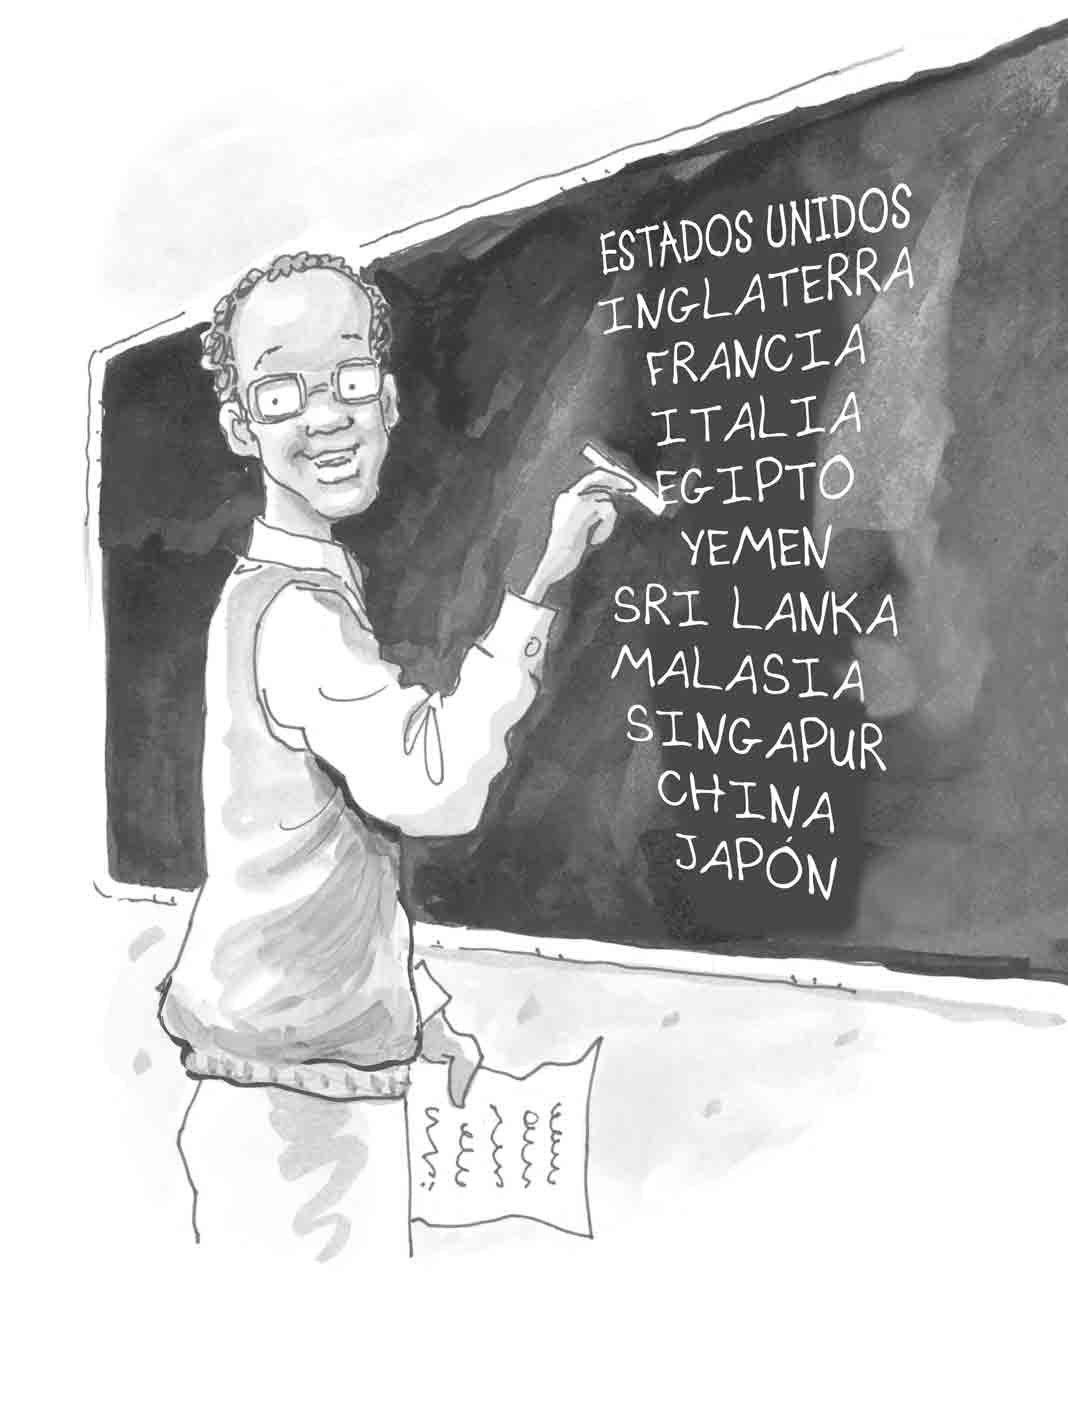 ESTADOS UNIDOS
INGLATERRA
FRANCIA
ITALIA
EGIPTO
YEMEN
SRI LANKA
MALASIA
SINGAPUR
CHINA
JAPÓN